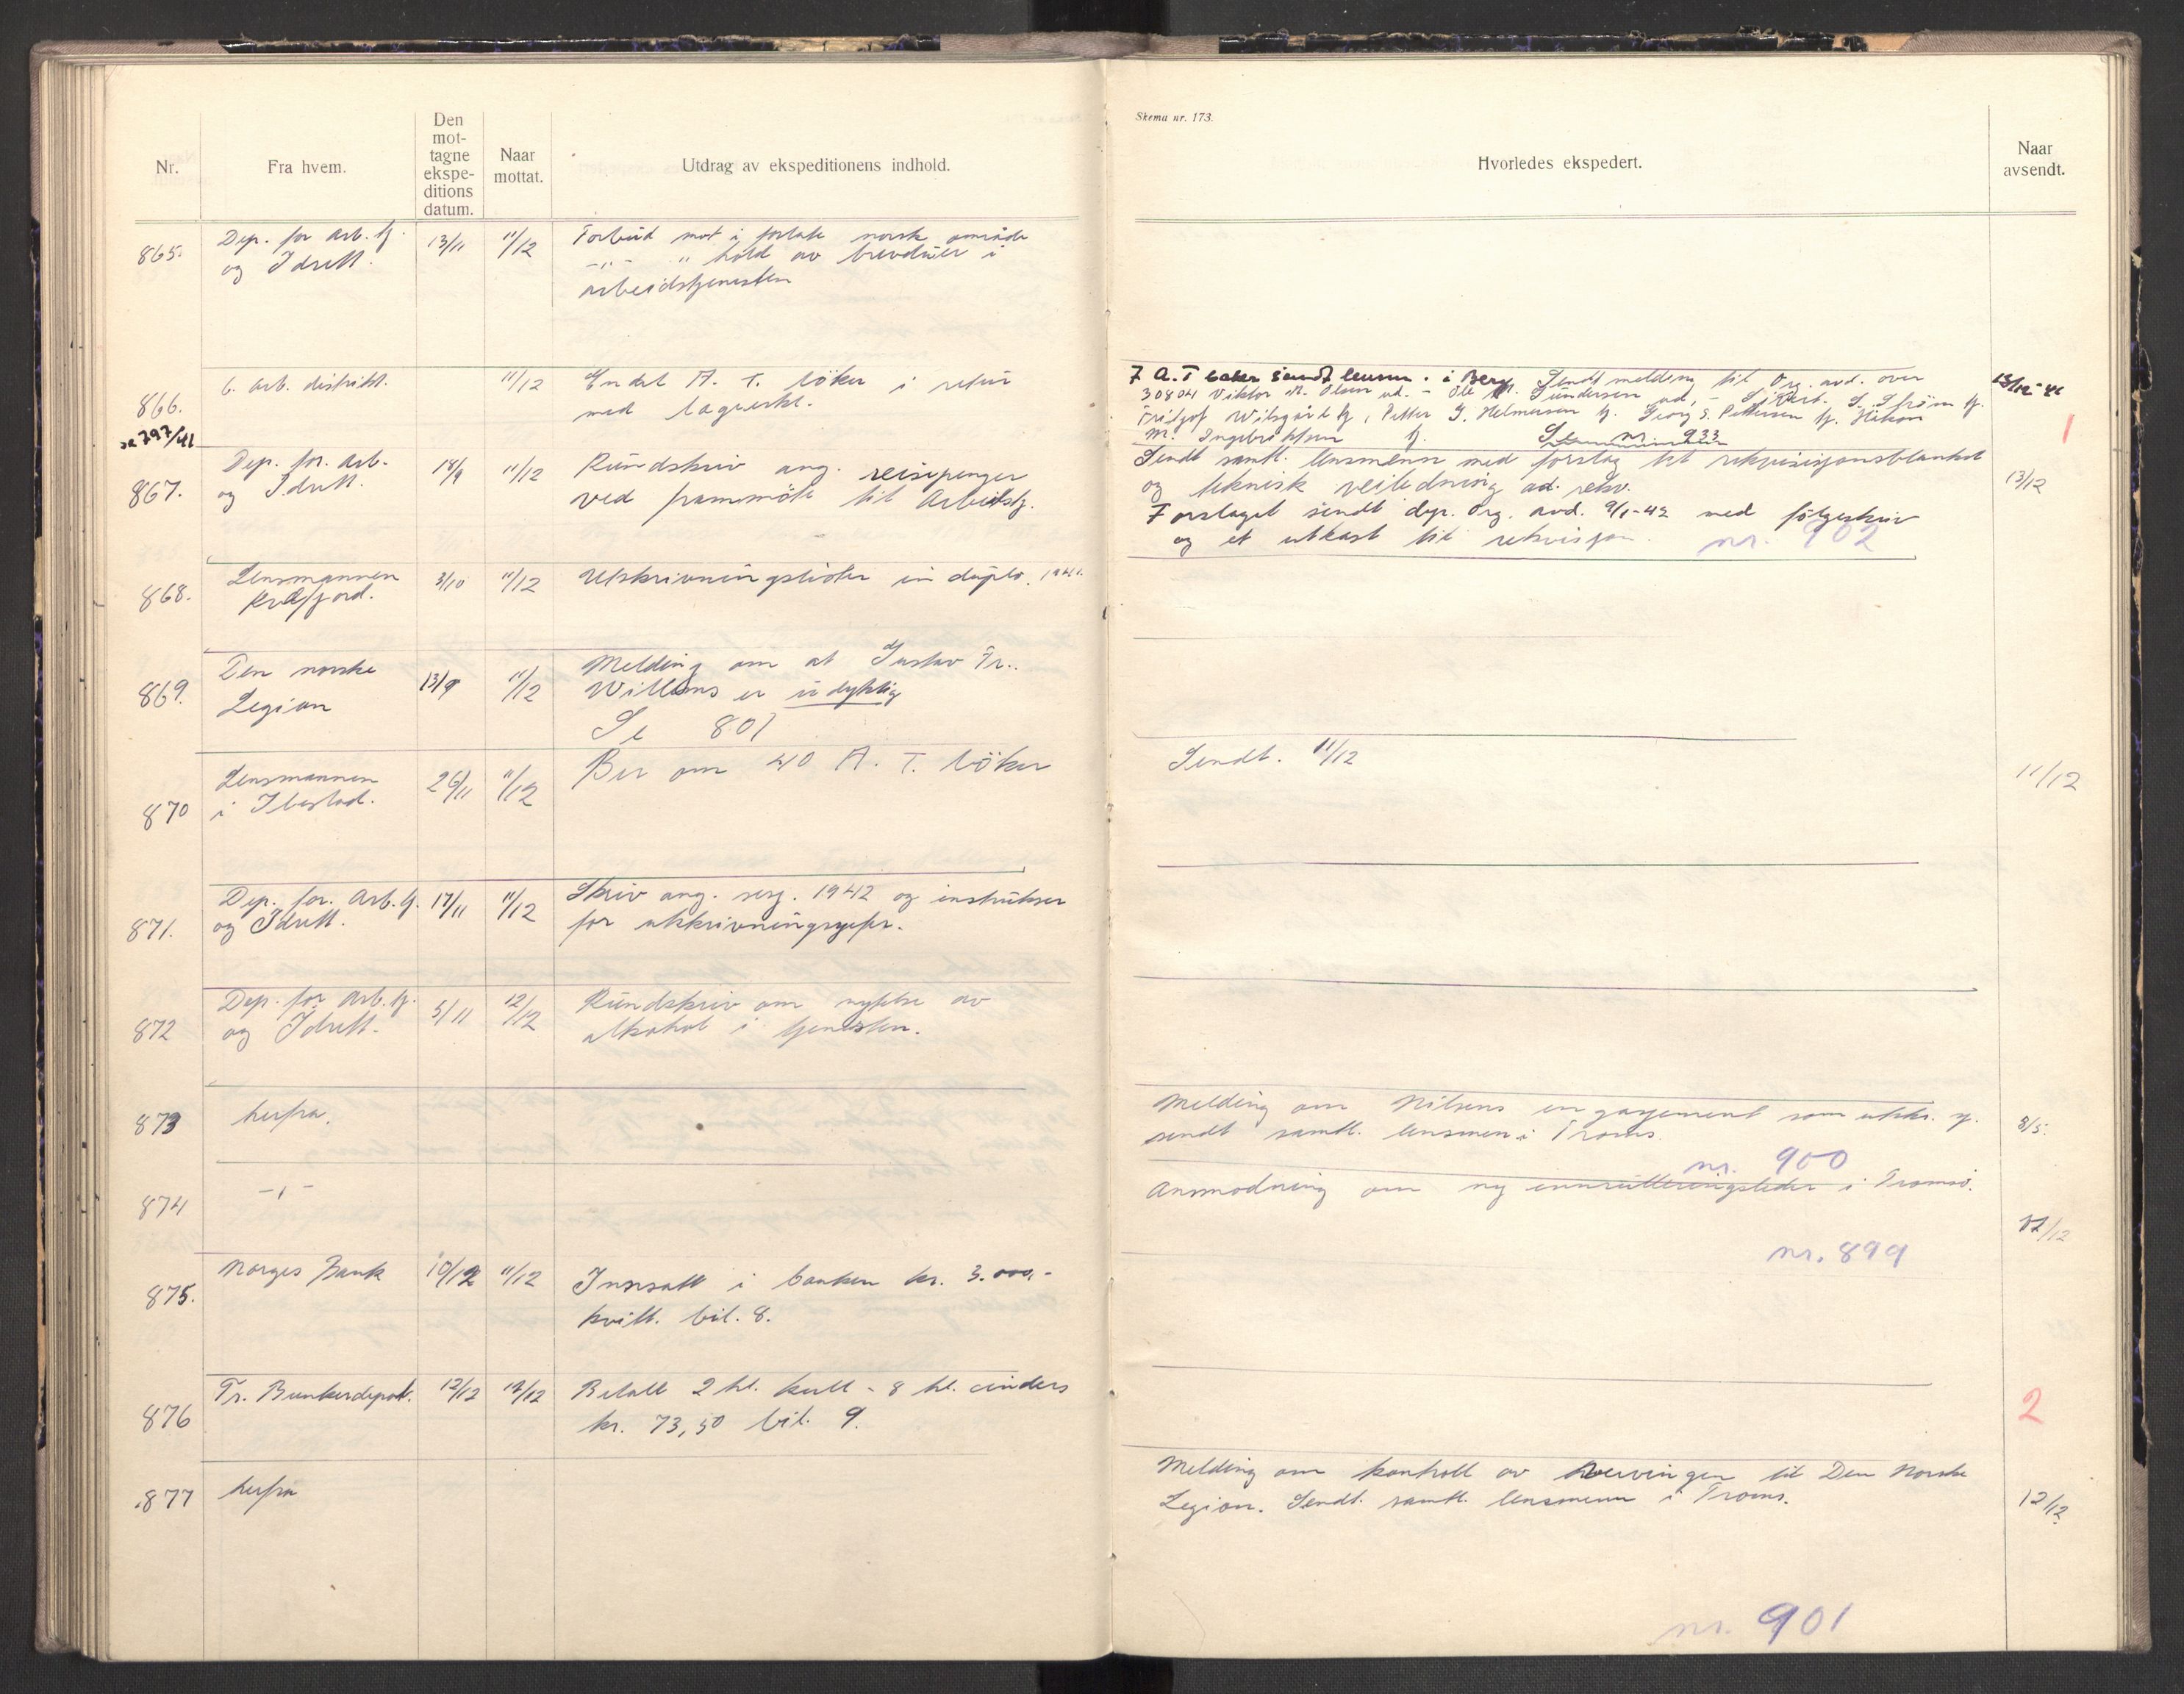 Nr.
Fra hvem.
Den
mot-
tagne
ekspe-
ditions
datum.
Naar
mottat.
Utdrag av ekspeditionens indhold.
865.
Dep. for Arb. tj.
og Idrett.
13/11
11/12
Forbud mot i forlate norsk område
-"- " hold av brevduer i
arbeidstjenesten
866.
se 797/41
6. arb. distrikt.
11/12
Endel A. T. böker i retur
med lagverkl.
867.
Dep. for. Arb-
og Idrett.
18/9
11/12
Rundskriv ang. reisepenger
ved frammöte til Arbeidstj.
868.
Lensmannen
Kvæfjord.
3/10
11/12
Utskrivningslister in duplo. 1941.
869.
Den norske
Legion
13/9
11/12
Melding om at Gustav Fr.
Willums er udyktig
Se 801
870
Lensmannen
i Ibestad.
26/11
11/12
Ber om 40 A. T. böker
871.
Dep. for. Arb. tj.
og Idrett.
17/11
11/12
Skriv ang. sesj. 1942 og instrukser
for utskrivningssjefer.
872
Dep. for Arb. tj.
og Idrett.
5/11
12/12
Rundskriv om nytelse av
alkohol i tjenesten.
873
herfra.
874
-"-
875.
Norges Bank
10/12
11/12
Innsatt i banken kr. 3.000,-
kvitt. bil. 8.
876
Tr. Bunkerdepot.
12/12
12/12
Betalt 2 hl. kull - 8 hl. cinders
kr. 73,50 bil. 9.
877
herfra
Skema nr. 173.
Hvorledes ekspedert.
Naar
avsendt.
7 A.T bøker sendt lensm. i Berg. Sendt melding til Org. avd. over
30804 Viktor M. Olsen ud. - Ole M. Gundersen ud, - Sigurd. S. Ström tj.
Fritjof Wilsgård tj, Petter J. Helmersen tj. Georg E. Pettersen tj. Håkon
M. Ingebriktsen tj. Se nr. 933
13/12-41
1
Sendt samtl. lensmenn med forslag til rekvisisjonsblankett
og teknisk veiledning ad. rekv.
13/12
Forslaget sendt dep. Org. avd. 9/1-42 med fölgeskriv
og et utkast til rekvisjon. nr. 902
Sendt. 11/12
11/12
Melding om Nilsens engasjement som utskr. sj.
sendt samtl. lensmen i Troms.
8/5.
nr. 900
Anmodning om ny innrulleringsleder i Tromsö.
12/12
nr. 899
2
Melding om kontroll av vervingen til Den Norske
Legion. Sendt. samtl. lensmenn i Troms.
12/12
nr. 901